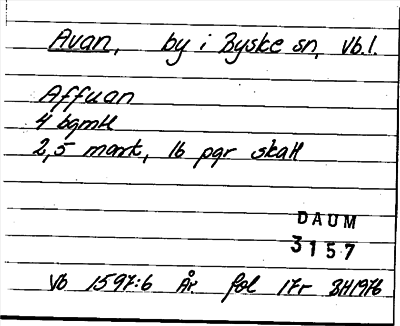 Avan, by i Byske sn, Vb.l.
Affuan
4 bgmtl
2,5 mark, 16 pgr skatt
DAUM
3157
Vb 1597:6 År fol 17r BH1976